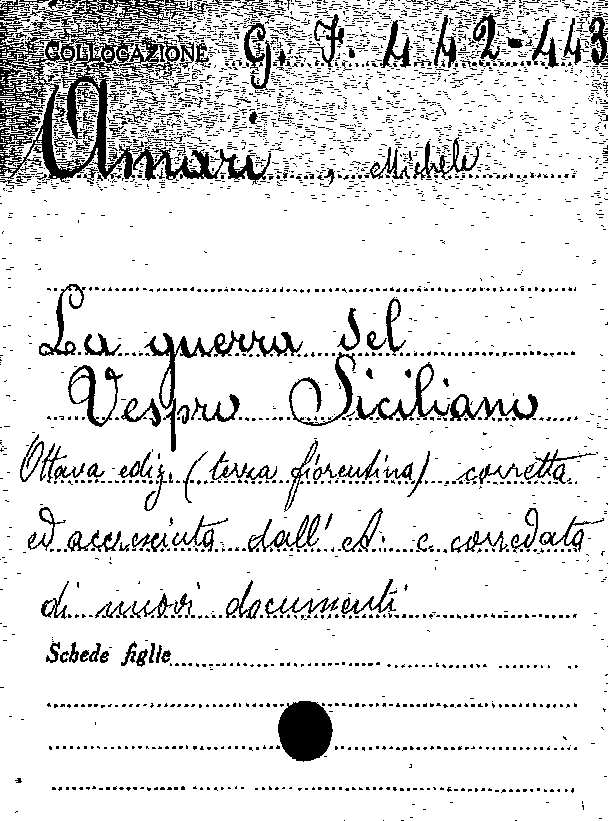 COLLOCAZIONE G. F. 442-443
Amari, Michele
La guerra del
Vespro Siciliano
Ottava ediz. (terza fiorentina) corretta
ed accresciuta dall' A. e corredata
di nuovi documenti
Schede figlie